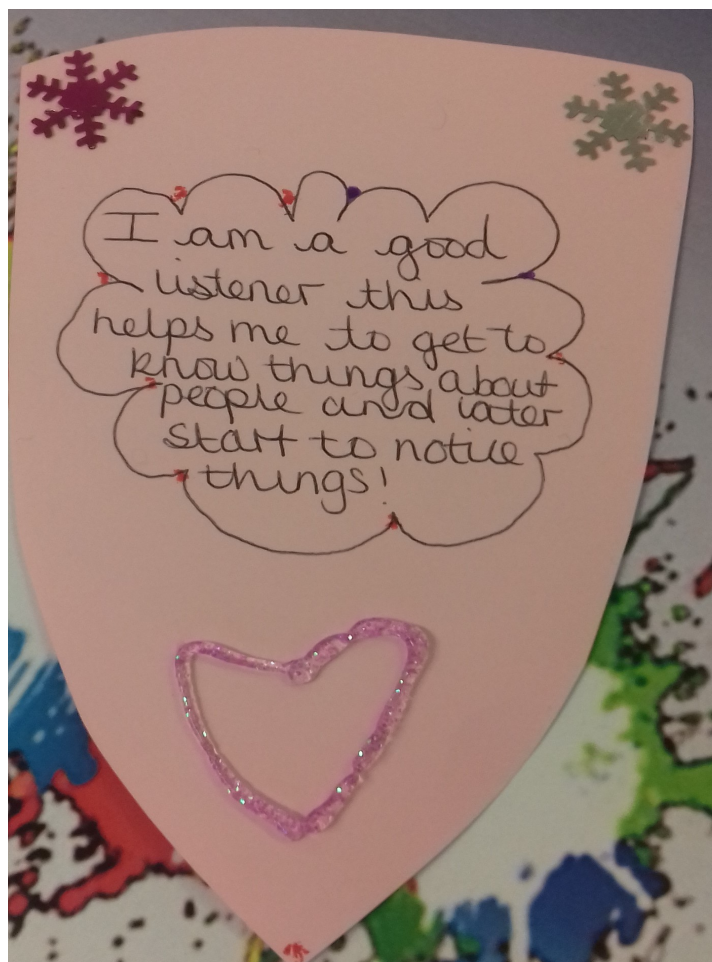 I am a good
listener this
helps me to get to
know things about
people and later
start to notice
things!